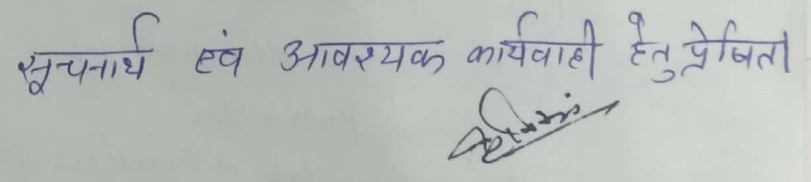 सूचनार्थ एवं आवश्यक कार्यवाही हेतु प्रेषित।